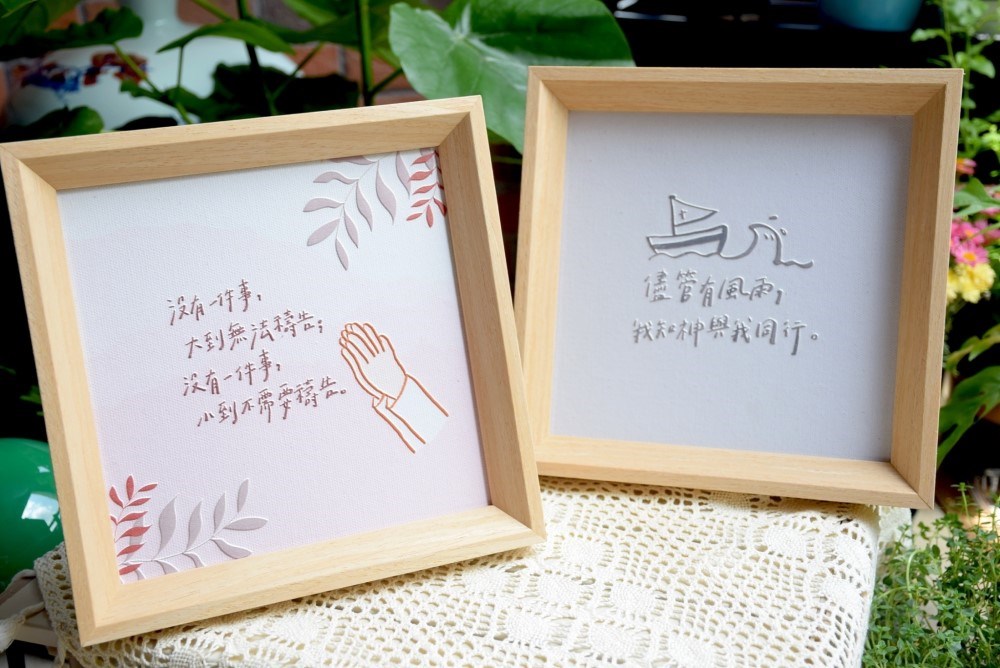 沒有一件事，
大到無法禱告；
沒有一件事，
小到不需要禱告。
儘管有風雨，
我知神與我同行。